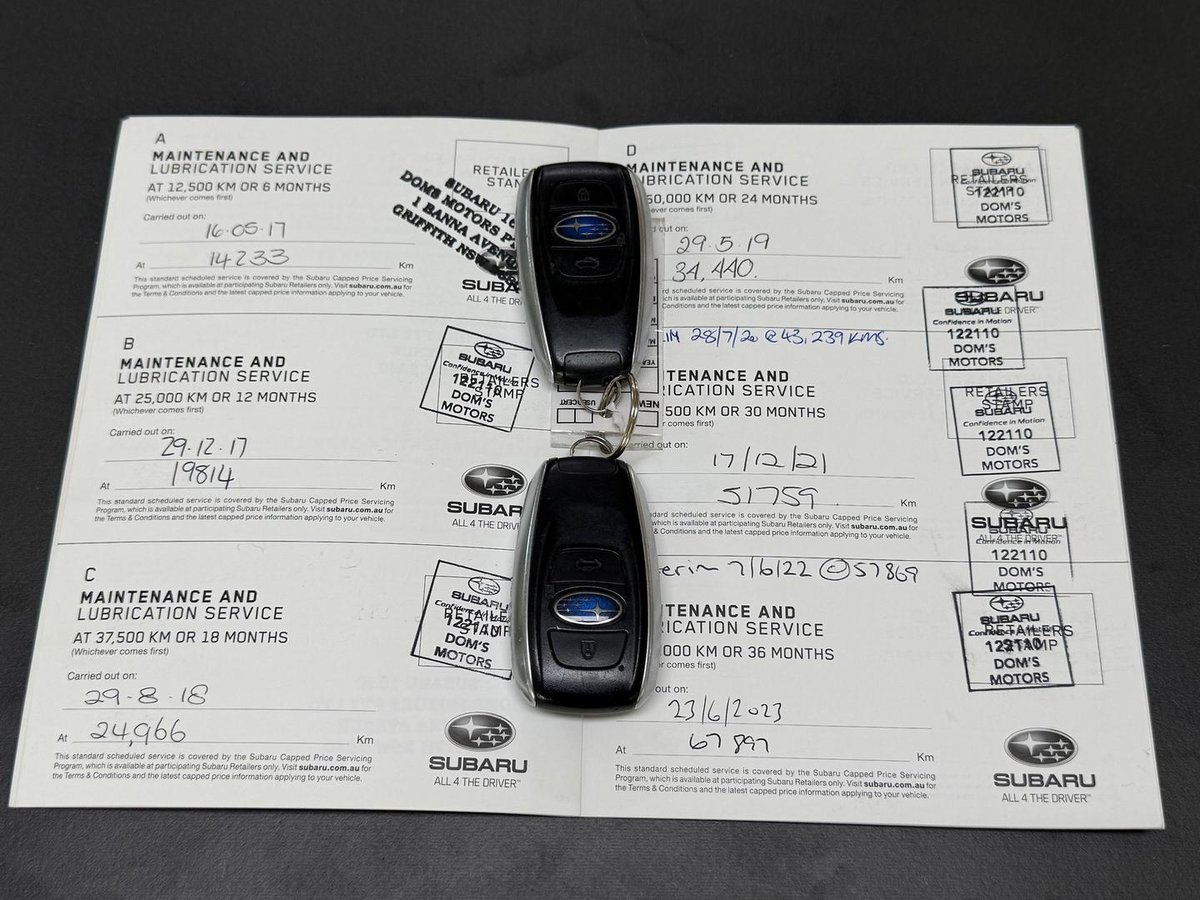 A
MAINTENANCE AND
LUBRICATION SERVICE
AT 12,500 KM OR 6 MONTHS
(Whichever comes first)
Carried out on:
16·05·17
At 14233 Km
This standard scheduled service is covered by the Subaru Capped Price Servicing
Program, which is available at participating Subaru Retailers only. Visit subaru.com.au for
the Terms & Conditions and the latest capped price information applying to your vehicle.
SUBARU
DOMS MOTORS
1 BANNA
GRIFFITH NSW
ALL 4 THE
B
MAINTENANCE AND
LUBRICATION SERVICE
AT 25,000 KM OR 12 MONTHS
(Whichever comes first)
Carried out on:
29·12·17
At 19814 Km
This standard scheduled service is covered by the Subaru Capped Price Servicing
Program, which is available at participating Subaru Retailers only. Visit subaru.com.au for
the Terms & Conditions and the latest capped price information applying to your vehicle.
RETAILERS
STAMP
SUBARU
Confidence in Motion
DOM'S
MOTORS
ALL 4 THE
C
MAINTENANCE AND
LUBRICATION SERVICE
AT 37,500 KM OR 18 MONTHS
(Whichever comes first)
Carried out on:
29·8·18
At 24,966 Km
This standard scheduled service is covered by the Subaru Capped Price Servicing
Program, which is available at participating Subaru Retailers only. Visit subaru.com.au for
the Terms & Conditions and the latest capped price information applying to your vehicle.
SUBARU
DOM'S
MOTORS
SUBARU
ALL 4 THE DRIVER™
D
MAINTENANCE AND
LUBRICATION SERVICE
50,000 KM OR 24 MONTHS
comes first)
out on:
29·5·19
34,440. Km
covered by the Subaru Capped Price Servicing
which is available at participating Subaru Retailers only. Visit subaru.com.au for
Conditions and the latest capped price information applying to your vehicle.
RETAILERS
STAMP
SUBARU
122110
DOM'S
MOTORS
SUBARU
28/7/20 @ 43,239 KMS.
SUBARU
Confidence in Motion
122110
DOM'S
MOTORS
MAINTENANCE AND
SERVICE
500 KM OR 30 MONTHS
comes first)
out on:
17/12/21
51759 Km
covered by the Subaru Capped Price Servicing
which is available at participating Subaru Retailers only. Visit subaru.com.au for
Conditions and the latest capped price information applying to your vehicle.
RETAILERS
STAMP
122110
DOM'S
MOTORS
SUBARU
7/6/22 @ 57869
122110
DOM'S
MOTORS
MAINTENANCE AND
SERVICE
000 KM OR 36 MONTHS
comes first)
out on:
23/6/2023
At 67897 Km
This standard scheduled service is covered by the Subaru Capped Price Servicing
Program, which is available at participating Subaru Retailers only. Visit subaru.com.au for
the Terms & Conditions and the latest capped price information applying to your vehicle.
RETAILERS
STAMP
SUBARU
122110
DOM'S
MOTORS
SUBARU
ALL 4 THE DRIVER™